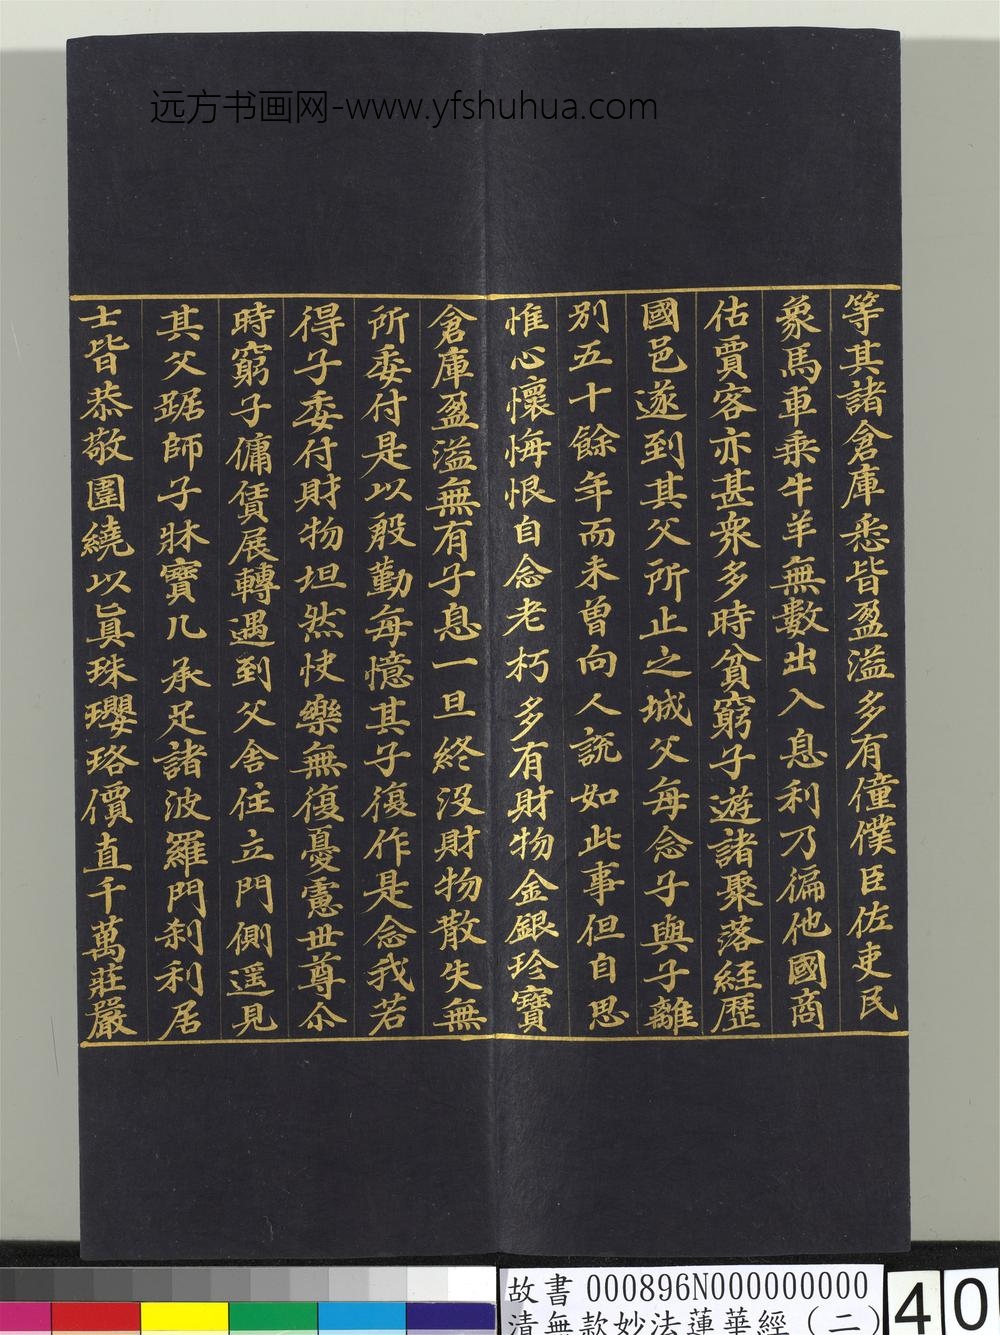 远方书画网-www.yfshuhua.com
等其諸倉庫悉皆盈溢多有僮僕臣佐吏民
象馬車乘牛羊無數出入息利乃徧他國商
估賈客亦甚衆多時貧窮子遊諸聚落經歷
國邑遂到其父所止之城父每念子與子離
別五十餘年而未曾向人說如此事但自思
惟心懷悔恨自念老朽多有財物金銀珍寶
倉庫盈溢無有子息一旦終没財物散失無
所委付是以殷勤每憶其子復作是念我若
得子委付財物坦然快樂無復憂慮世尊尒
時窮子傭賃展轉遇到父舍住立門側遥見
其父踞師子牀寶几承足諸波羅門刹利居
士皆恭敬圍繞以真珠瓔珞價直千萬莊嚴
故書 000896N000000000
清無款妙法蓮華經(二)
40